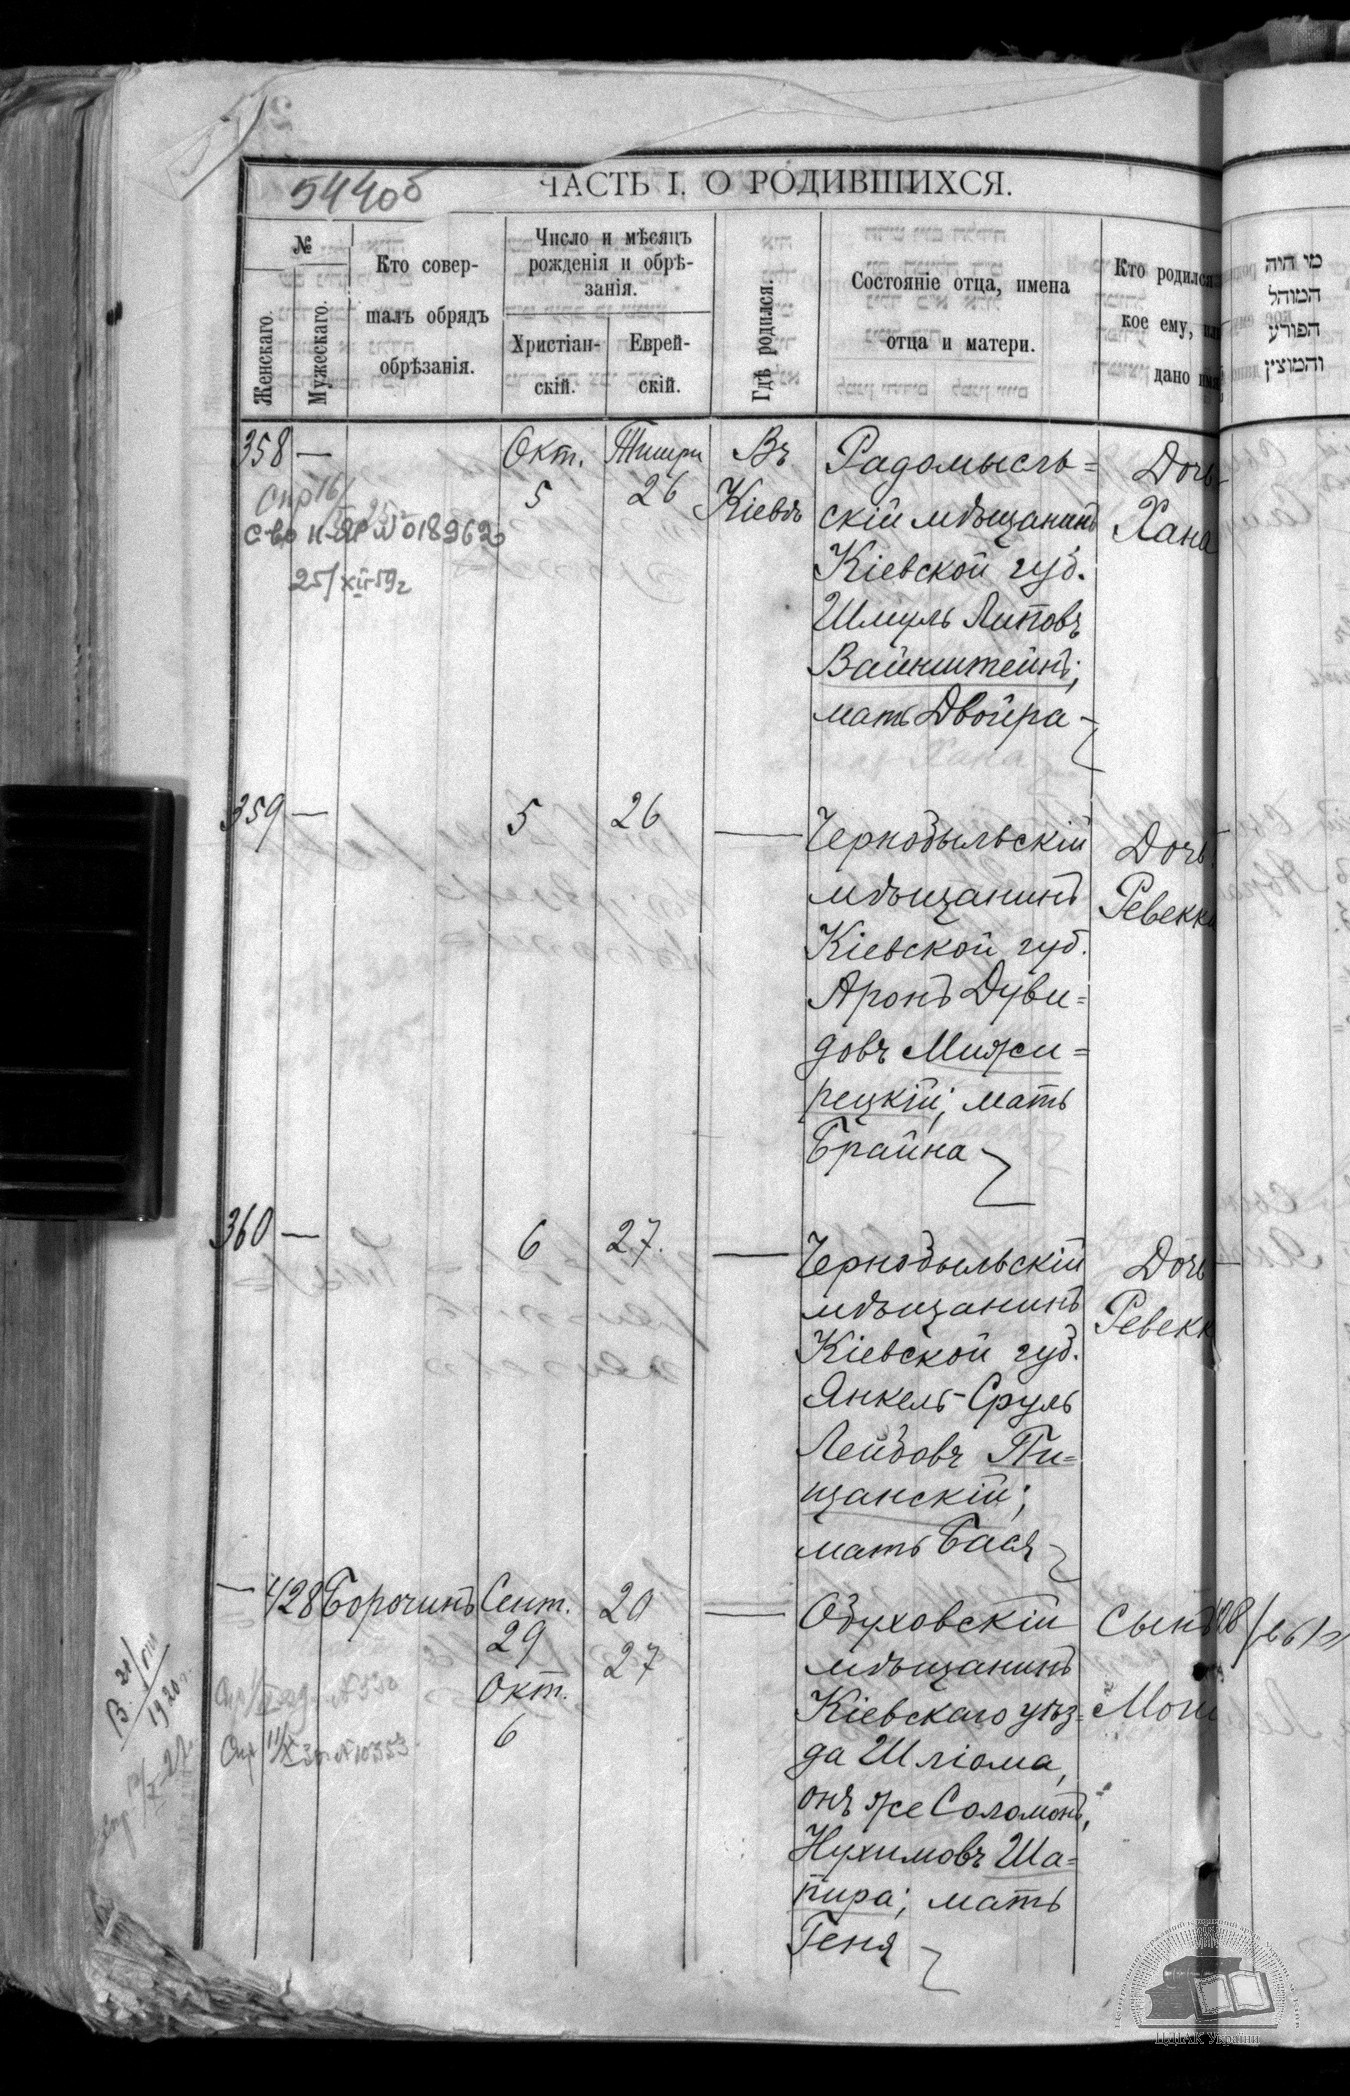 544об
ЧАСТЬ I. О РОДИВШИХСЯ.
№
Женскаго.
Мужескаго.
Кто совер-
шалъ обрядъ
обрѣзанія.
Число и мѣсяцъ
рожденія и обрѣ-
занія.
Христіан-
скій.
Еврей-
скій.
Гдѣ родился.
Состояніе отца, имена
отца и матери.
Кто родился
кое ему, или
дано имя
מי היה
המוהל
הפורע
והמוצץ
358 —
Окт.
5
Тишри
26
Въ
Кіевѣ
Радомысль=
скій мѣщанинъ
Кіевской губ.
Шмуль Липовъ
Вайнштейнъ;
мать Двойра
Дочь
Хана
с-во № 018962
25/XII 59г
359 —
5
26
—
Чернобыльскій
мѣщанинъ
Кіевской губ.
Аронъ Дуви=
довъ Межи=
рецкій; мать
Брайна
Дочь
Ревекка
360 —
6
27.
—
Чернобыльскій
мѣщанинъ
Кіевской губ.
Янкель-Сруль
Лейбовъ Пи=
щанскій;
мать Бася
Дочь
Ревекк
— 428
Борочинъ
Сент.
29
Окт.
6
20
27
—
Обуховскій
мѣщанинъ
Кіевскаго уѣз=
да Шліома,
онъ же Соломонъ,
Нухимовъ Ша=
пира; мать
Геня
Сынъ
Мош
1920
ЦДІАК України